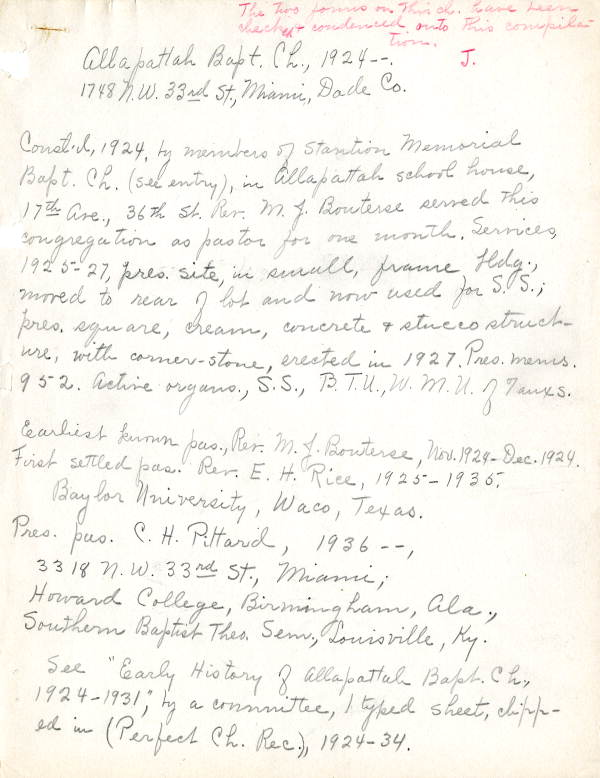 The two forms on this ch. have been
checked & condenced onto this compila-
tion. J.
Allapattah Bapt. Ch., 1924--.
1748 N.W. 33rd St., Miami, Dade Co.
Const'd, 1924, by members of Stantion Memorial
Bapt. Ch. (see entry), in Allapattah school house,
17th Ave., 36th St. Rev. M. J. Bouterse served this
congregation as pastor for one month. Services,
1925-27, pres. site, in small, frame bldg.,
moved to rear of lot and now used for S.S.;
pres. square, cream, concrete & stucco struct-
ure, with corner-stone, erected in 1927. Pres. mems.
952. Active organs., S.S., B.T.U., W.M.U. &
Earliest known pas., Rev. M. J. Bouterse, Nov. 1924-Dec. 1924.
First settled pas. Rev. E. H. Rice, 1925-1935.
Baylor University, Waco, Texas.
Pres. pas. C. H. Pittard, 1936--,
3318 N.W. 33rd St., Miami;
Howard College, Birmingham, Ala.,
Southern Baptist Theo. Sem., Louisville, Ky.
See "Early History of Allapattah Bapt. Ch.,
1924-1931", by a committee, 1 typed sheet, clipp-
ed in (Perfect Ch. Rec.), 1924-34.